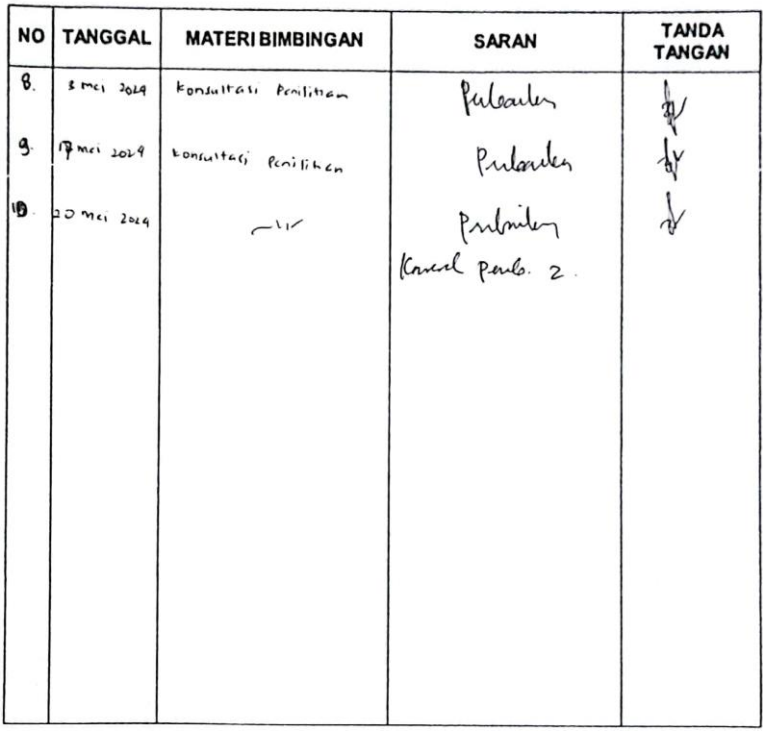 NO TANGGAL MATERI BIMBINGAN SARAN TANDA TANGAN
8. 3 mei 2024 Konsultasi Penilitian Perbaikan
9. 17 mei 2024 Konsultasi Penilitian Perbaikan
10. 20 mei 2024 Perbaikan
2.